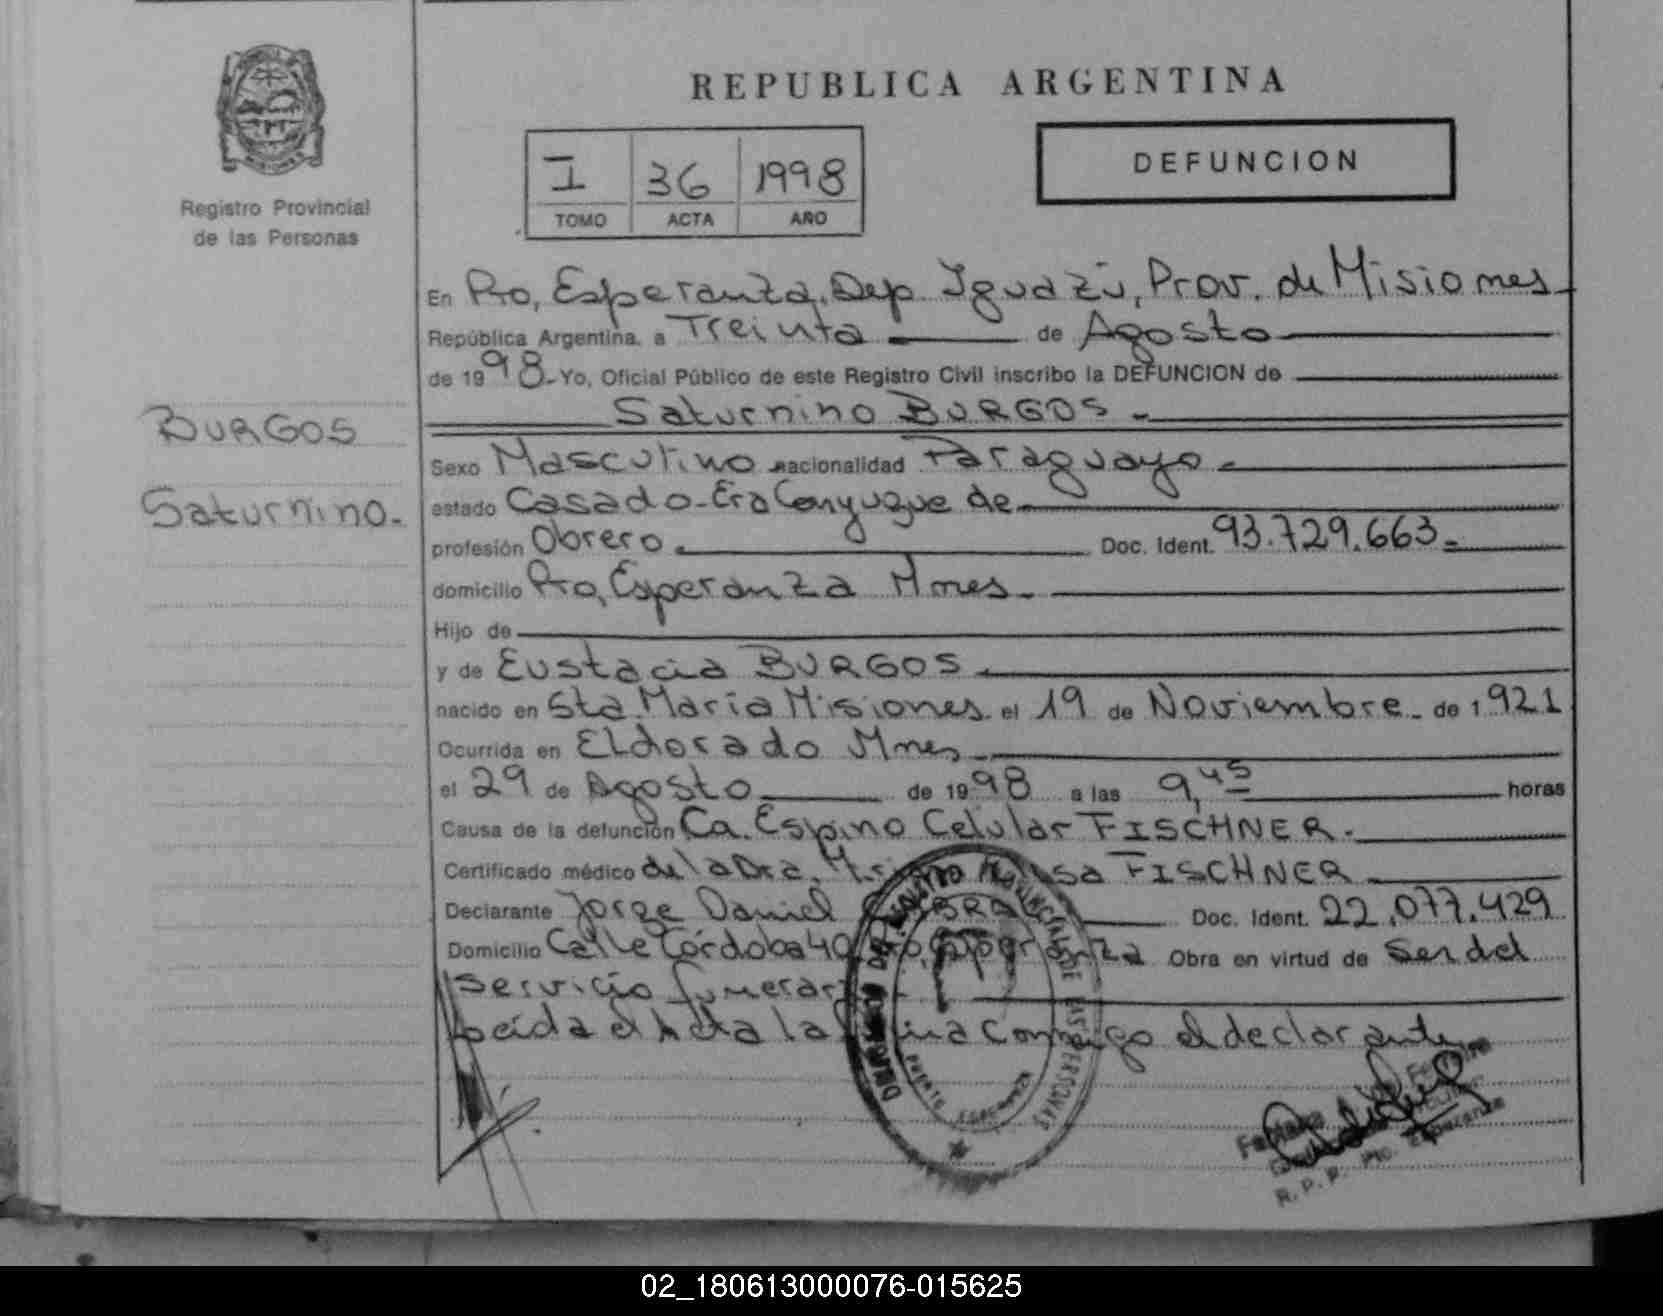 REPUBLICA ARGENTINA
I 36 1998
TOMO ACTA AÑO
DEFUNCION
Registro Provincial
de las Personas
En Pto, Esperanza, Dep. Iguazú, Prov. de Misiones
República Argentina, a Treinta de Agosto
de 1998.- Yo, Oficial Público de este Registro Civil inscribo la DEFUNCION de
Saturnino BURGOS.-
BURGOS
Saturnino.-
Sexo Masculino nacionalidad Paraguayo.-
estado Casado-Era Conyugue de
profesión Obrero. Doc. Ident. 93.729.663.-
domicilio Pto, Esperanza Mnes.-
Hijo de
y de Eustacia BURGOS.
nacido en Sta. María Misiones el 19 de Noviembre.- de 1921
Ocurrida en Eldorado Mnes
el 29 de Agosto de 1998 a las 9,45 horas
Causa de la defunción Ca. Espino Celular FISCHNER.-
Certificado médico de la Dra. FISCHNER
Declarante Jorge Daniel Doc. Ident. 22.077.429
Domicilio Calle Córdoba Obra en virtud de Ser del
Servicio
Leida el Acta la conmigo el declarante
R. P. P. Pto. Esperanza
02_180613000076-015625